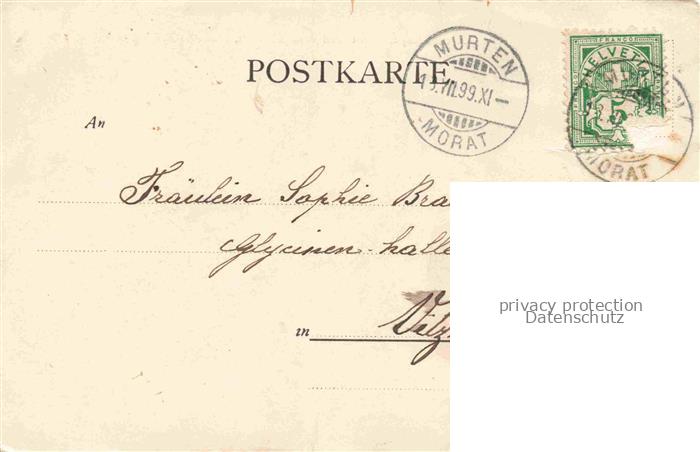 POSTKARTE
MURTEN
VII.99.XI
MORAT
FRANCO
HELVETIA
5
MORAT
An
Fräulein Sophie Bra
Glycinen-halle
in
privacy protection
Datenschutz